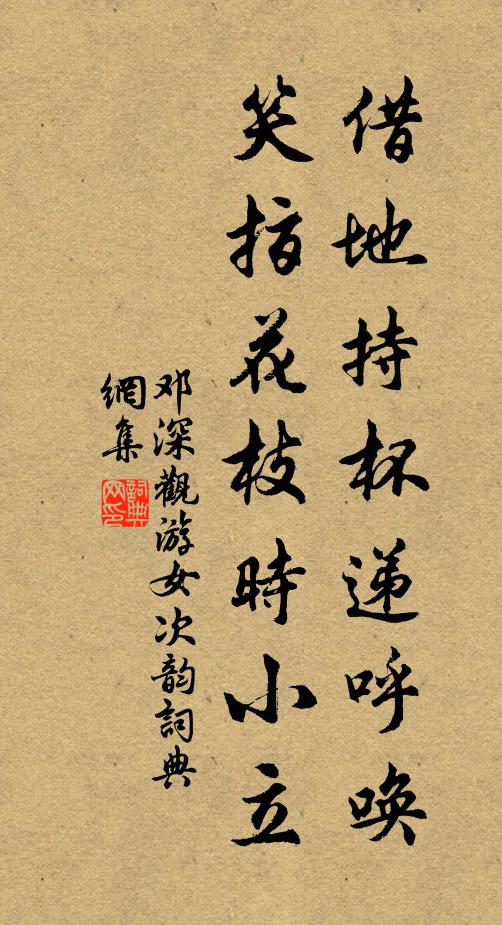 借地持杯递呼唤
笑指花枝時小立
邓深觀游女次韵詞典
網集
詞典
网印